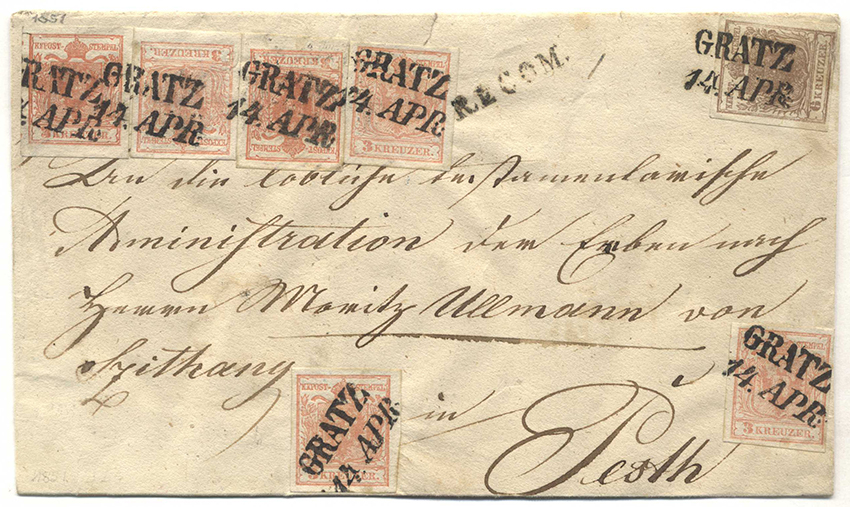 1851
KKPOST-STEMPEL
3 KREUZER.
GRATZ
14. APR
3 KREUZER.
GRATZ
14. APR
GRATZ
14. APR
KKPOST-STEMPEL
GRATZ
14. APR
3 KREUZER.
RECOM.
GRATZ
14. APR
6 KREUZER
An die löbliche testamentarische
Administration der Erben nach
Herrn Moritz Ullmann von
Szithany
in
Pesth
KKPOST-STEMPEL
GRATZ
14. APR
3 KREUZER.
GRATZ
14. APR
3 KREUZER.